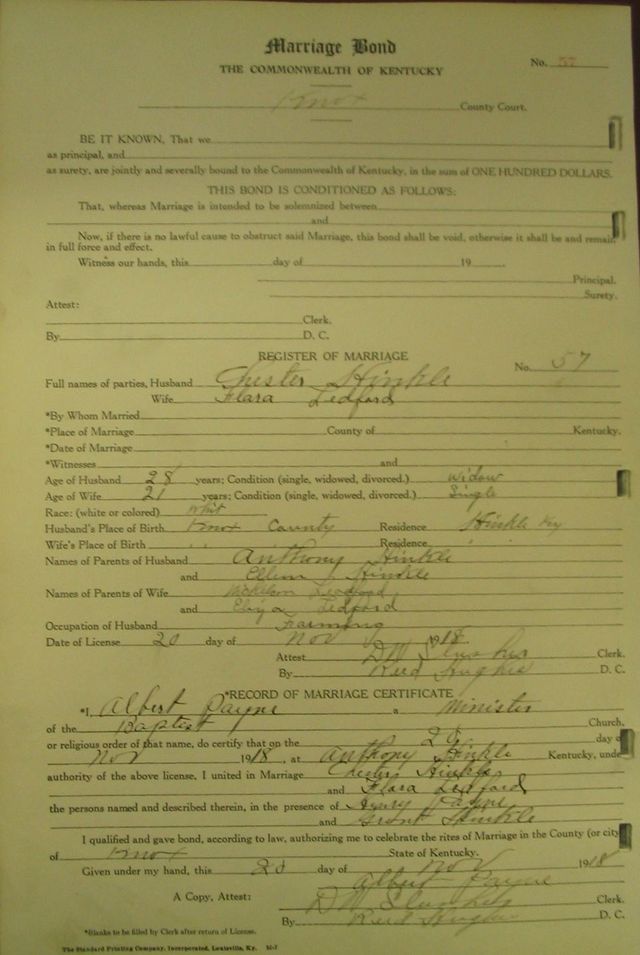 Marriage Bond
THE COMMONWEALTH OF KENTUCKY
No. 57
Knox County Court.
BE IT KNOWN, That we
as principal, and
as surety, are jointly and severally bound to the Commonwealth of Kentucky, in the sum of ONE HUNDRED DOLLARS.
THIS BOND IS CONDITIONED AS FOLLOWS:
That, whereas Marriage is intended to be solemnized between
and
Now, if there is no lawful cause to obstruct said Marriage, this bond shall be void, otherwise it shall be and remain
in full force and effect.
Witness our hands, this day of 19
Principal.
Surety.
Attest:
Clerk.
By D. C.
REGISTER OF MARRIAGE
No. 57
Full names of parties, Husband Chester Hinkle
Wife Flara Ledford
*By Whom Married
*Place of Marriage County of Kentucky.
*Date of Marriage
*Witnesses and
Age of Husband 28 years; Condition (single, widowed, divorced.) Widow
Age of Wife 21 years; Condition (single, widowed, divorced.) Single
Race: (white or colored) Whit
Husband's Place of Birth Knox County Residence Hinkle Ky
Wife's Place of Birth " " Residence "
Names of Parents of Husband Anthony Hinkle
and Ellen Hinkle
Names of Parents of Wife Ledford
and Ledford
Occupation of Husband Farming
Date of License 20 day of Nov 1918
Attest D W Clerk.
By Reed Hughes D. C.
*RECORD OF MARRIAGE CERTIFICATE
*I, Albert Payne a Minister
of the Baptest Church,
or religious order of that name, do certify that on the 20 day of
Nov 1918, at Anthony Hinkle Kentucky, unde
authority of the above license, I united in Marriage Chester Hinkle
and Flara Ledford
the persons named and described therein, in the presence of Henry Payne
and Grant Hinkle
I qualified and gave bond, according to law, authorizing me to celebrate the rites of Marriage in the County (or city
of Knox State of Kentucky.
Given under my hand, this 20 day of Nov 1918
Albert Payne
A Copy, Attest: D W Clerk.
By Reed Hughes D. C.
*Blanks to be filled by Clerk after return of License.
The Standard Printing Company, Incorporated, Louisville, Ky.